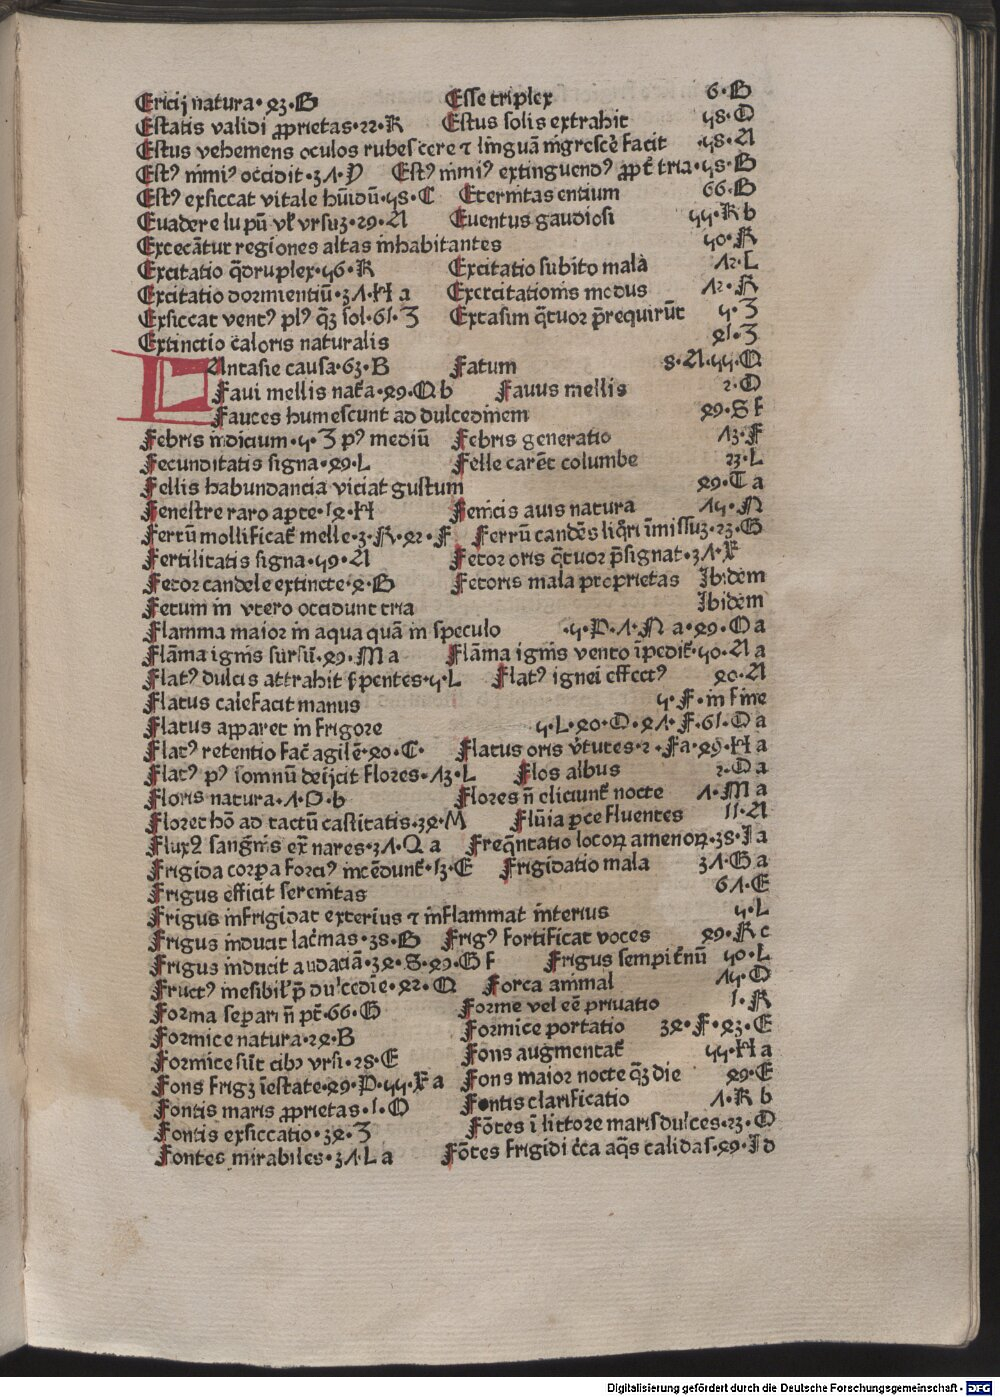 Ericij natura·ꝝ3·G Esse triplex 6·B
Estatis validi ꝓprietas·22·R Estus solis extrahit 58·O
Estus vehemens oculos rubescere ⁊ linguã nigrescẽ facit 58·A
Estꝰ nimiꝰ occidit·31·P Estꝰ nimiꝰ extinguendꝰ ꝓpt̃ tria·58·B
Estꝰ exsiccat vitale hũidũ·58·C Eternitas entium 66·B
Euadere lupũ vl̃ vrsuꝫ·29·A Euentus gaudiosi 55·R b
Excecãtur regiones altas inhabitantes 50·R
Excitatio q̃druplex·56·R Excitatio subito mala 12·L
Excitatio dormientiũ·31·H a Exercitationis modus 12·R
Exsiccat ventꝰ plꝰ q̃ꝫ sol·61·Z Extasim q̃tuor p̃requirũt 5·Z
Extinctio caloris naturalis 41·Z
Antasie causa·63·B Fatum 8·A·55·Q
Faui mellis nat̃a·49·Q b Fauus mellis 2·O
Fauces humescunt ad dulcedinem 49·S f
Febris indicium·5·Z pꝰ mediũ Febris generatio 13·F
Fecunditatis signa·49·L Felle carẽt columbe 23·L
Fellis habundancia viciat gustum 49·T a
Fenestre raro aperte·14·H Fenicis auis natura 15·N
Ferrũ mollificat̃ melle·3·R·42·F Ferrũ candẽs liq̃ri ĩmissuꝫ·23·G
Fertilitatis signa·59·A Fetor oris q̃tuor p̃signat·31·X
Fetor candele extincte·4·B Fetoris mala proprietas Ibidem
Fetum in vtero occidunt tria Ibidem
Flamma maior in aqua quã in speculo ·5·P·1·N a·49·O a
Flãma ignis sursũ·49·M a Flãma ignis vento ĩpedit̃·50·A a
Flatꝰ dulcis attrahit sᵱentes·5·L Flatꝰ ignei effectꝰ 40·A
Flatus calefacit manus 5·F·in fine
Flatus apparet in frigore 5·L·40·O·41·F·61·O a
Flatꝰ retentio fac̃ agilẽ·40·C· Flatus oris v̑tutes·2·F a·49·H a
Flatꝰ pꝰ somnũ deijcit flores·13·L Flos albus 2·O a
Floris natura·1·O·b Flores ñ eliciunt̃ nocte 1·M a
Floret hõ ad tactũ castitatis·34·M Flũia ᵱce fluentes 11·A
Fluxꝰ sanguinis ex nares·31·Q a Freq̃ntatio locoꝝ amenoꝝ·38·I a
Frigida corpa forciꝰ incẽdunt̃·13·E Frigidatio mala 31·G a
Frigus efficit serenitas 61·E
Frigus infrigidat exterius ⁊ inflammat interius 5·L
Frigus inducit lac̃mas·38·B Frigꝰ fortificat voces 49·R c
Frigus inducit audaciã·34·S·49·G f Frigus sempit̃nũ 50·L
Fructꝰ inesibil̃ p̃ dulcedie·42·Q Forca animal 15·O
Forma separari ñ pt̃·66·G Forme vel eẽ priuatio 1·R
Formice natura·24·B Formice portatio 34·F·43·E
Formice sũt cibꝰ vrsi·28·E Fons augmentat̃ 55·H a
Fons frigꝫ ĩestate·49·P·55·X a Fons maior nocte q̃ꝫ die 49·E
Fontis maris ꝓprietas·1·O Fontis clarificatio 1·R b
Fontis exsiccatio·34·Z Fõtes ĩ littore maris dulces·23·O
Fontes mirabiles·31·L a Fõtes frigidi c̃ca aq̃s calidas·49·I d
Digitalisierung gefördert durch die Deutsche Forschungsgemeinschaft - DFG